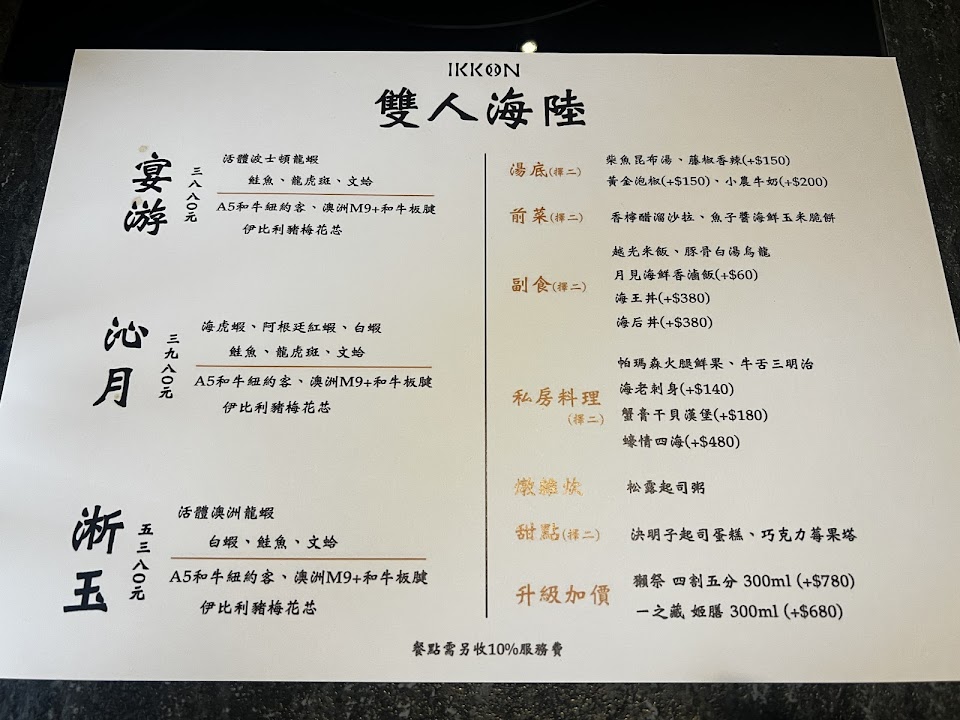 IKKON
雙人海陸
宴游
三八八〇元
活體波士頓龍蝦
鮭魚、龍虎斑、文蛤
A5和牛紐約客、澳洲M9+和牛板腱
伊比利豬梅花芯
沁月
三九八〇元
海虎蝦、阿根廷紅蝦、白蝦
鮭魚、龍虎斑、文蛤
A5和牛紐約客、澳洲M9+和牛板腱
伊比利豬梅花芯
淅玉
五三八〇元
活體澳洲龍蝦
白蝦、鮭魚、文蛤
A5和牛紐約客、澳洲M9+和牛板腱
伊比利豬梅花芯
湯底(擇二)
柴魚昆布湯、藤椒香辣(+$150)
黃金泡椒(+$150)、小農牛奶(+$200)
前菜(擇二)
香檸醋溜沙拉、魚子醬海鮮玉米脆餅
副食(擇二)
越光米飯、豚骨白湯烏龍
月見海鮮香滷飯(+$60)
海王丼(+$380)
海后丼(+$380)
私房料理
(擇二)
帕瑪森火腿鮮果、牛舌三明治
海老刺身(+$140)
蟹膏干貝漢堡(+$180)
蠔情四海(+$480)
燉雜炊
松露起司粥
甜點(擇二)
決明子起司蛋糕、巧克力莓果塔
升級加價
獺祭 四割五分 300ml (+$780)
一之藏 姬膳 300ml (+$680)
餐點需另收10%服務費